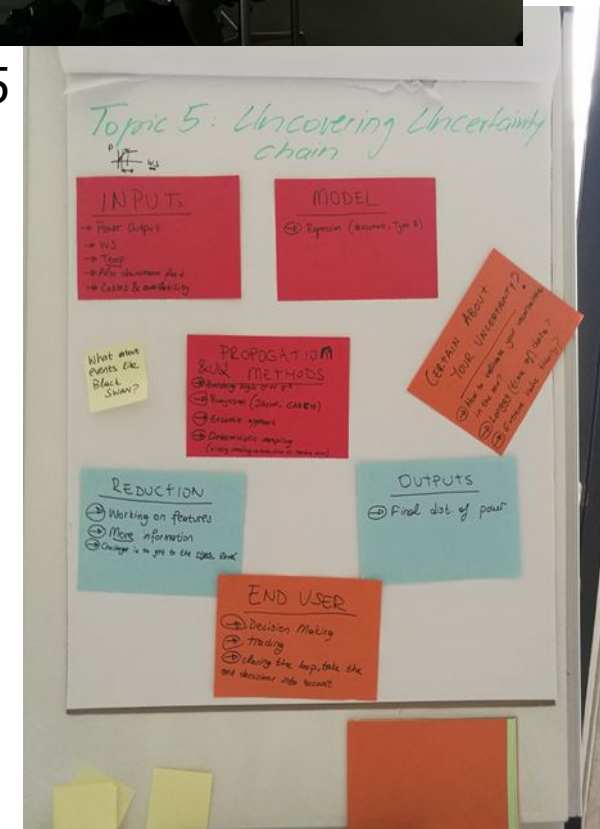 5
Topic 5: Uncovering Uncertainty
chain
WS
INPUTs
→ Power Output
→ WS
→ Temp
→ Losses & availability
MODEL
→ Regression
CERTAIN ABOUT
YOUR UNCERTAINTY?
→ How to estimate your uncertainties
in the
→ Longer (time of) data?
→ Extreme value theory?
What about
events like
Black
SWAN?
PROPOGATION
&UQ METHODS
→ Ensemble
→ Deterministic sampling
REDUCTION
→ Working on features
→ More information
→ Challenge is to get to the level
OUTPUTS
→ Final dist. of power
END USER
→ Decision Making
→ trading
→ closing the loop, take the
end decisions into account